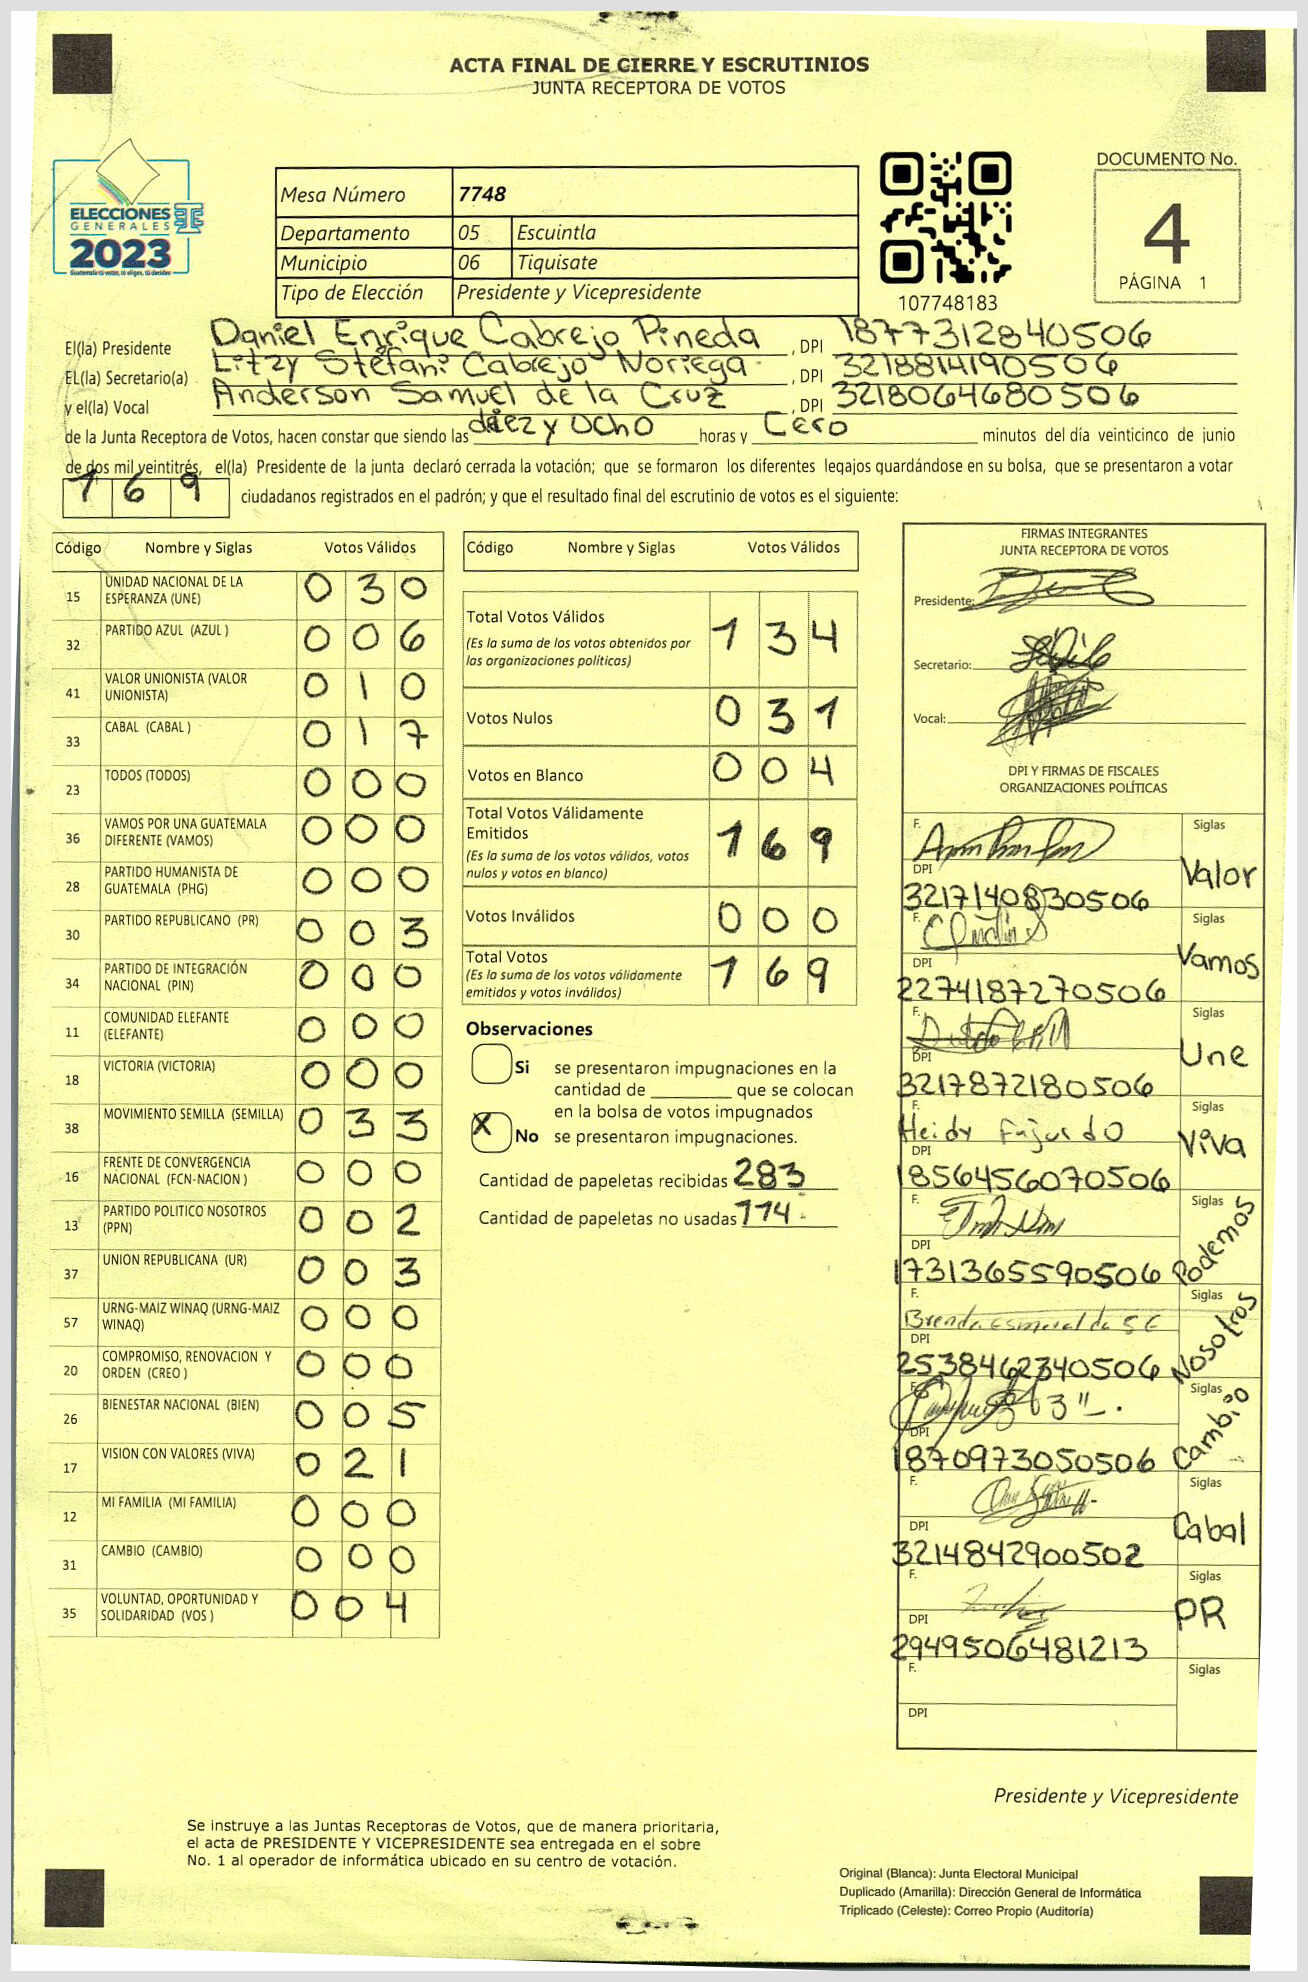 ACTA FINAL DE CIERRE Y ESCRUTINIOS
JUNTA RECEPTORA DE VOTOS
ELECCIONES
GENERALES
2023
Guatemala tú votas, tú eliges, tú decides
Mesa Número 7748
Departamento 05 Escuintla
Municipio 06 Tiquisate
Tipo de Elección Presidente y Vicepresidente
107748183
DOCUMENTO No.
4
PÁGINA 1
El(la) Presidente Daniel Enrique Cabrejo Pineda , DPI 1877312840506
EL(la) Secretario(a) Litzy Stéfani Cabrejo Noriega , DPI 3218814190506
y el(la) Vocal Anderson Samuel de la Cruz , DPI 3218064680506
de la Junta Receptora de Votos, hacen constar que siendo las diez y ocho horas y Cero minutos del día veinticinco de junio
de dos mil veintitrés, el(la) Presidente de la junta declaró cerrada la votación; que se formaron los diferentes legajos guardándose en su bolsa, que se presentaron a votar
169 ciudadanos registrados en el padrón; y que el resultado final del escrutinio de votos es el siguiente:
Código Nombre y Siglas Votos Válidos
15 UNIDAD NACIONAL DE LA ESPERANZA (UNE) 030
32 PARTIDO AZUL (AZUL ) 006
41 VALOR UNIONISTA (VALOR UNIONISTA) 010
33 CABAL (CABAL ) 017
23 TODOS (TODOS) 000
36 VAMOS POR UNA GUATEMALA DIFERENTE (VAMOS) 000
28 PARTIDO HUMANISTA DE GUATEMALA (PHG) 000
30 PARTIDO REPUBLICANO (PR) 003
34 PARTIDO DE INTEGRACIÓN NACIONAL (PIN) 000
11 COMUNIDAD ELEFANTE (ELEFANTE) 000
18 VICTORIA (VICTORIA) 000
38 MOVIMIENTO SEMILLA (SEMILLA) 033
16 FRENTE DE CONVERGENCIA NACIONAL (FCN-NACION ) 000
13 PARTIDO POLITICO NOSOTROS (PPN) 002
37 UNION REPUBLICANA (UR) 003
57 URNG-MAIZ WINAQ (URNG-MAIZ WINAQ) 000
20 COMPROMISO, RENOVACION Y ORDEN (CREO ) 000
26 BIENESTAR NACIONAL (BIEN) 005
17 VISION CON VALORES (VIVA) 021
12 MI FAMILIA (MI FAMILIA) 000
31 CAMBIO (CAMBIO) 000
35 VOLUNTAD, OPORTUNIDAD Y SOLIDARIDAD (VOS ) 004
Código Nombre y Siglas Votos Válidos
Total Votos Válidos 134
(Es la suma de los votos obtenidos por
las organizaciones políticas)
Votos Nulos 031
Votos en Blanco 004
Total Votos Válidamente
Emitidos 169
(Es la suma de los votos válidos, votos
nulos y votos en blanco)
Votos Inválidos 000
Total Votos 169
(Es la suma de los votos válidamente
emitidos y votos inválidos)
Observaciones
Si se presentaron impugnaciones en la
cantidad de ________ que se colocan
en la bolsa de votos impugnados
X No se presentaron impugnaciones.
Cantidad de papeletas recibidas 283
Cantidad de papeletas no usadas 114
FIRMAS INTEGRANTES
JUNTA RECEPTORA DE VOTOS
Presidente:
Secretario:
Vocal:
DPI Y FIRMAS DE FISCALES
ORGANIZACIONES POLÍTICAS
F. Siglas
DPI Valor
3217140830506
F. Siglas
DPI Vamos
2274187270506
F. Siglas
DPI Une
3217872180506
F. Heidy Fajardo Siglas
DPI Viva
1856456070506
F. Siglas
DPI Podemos
1731365590506
F. Brenda Esmeralda Siglas
DPI Nosotros
2538462340506
F. Siglas
DPI Cambio
1870973050506
F. Siglas
DPI Cabal
3214842900502
F. Siglas
DPI PR
2949506481213
F. Siglas
DPI
Presidente y Vicepresidente
Se instruye a las Juntas Receptoras de Votos, que de manera prioritaria,
el acta de PRESIDENTE Y VICEPRESIDENTE sea entregada en el sobre
No. 1 al operador de informática ubicado en su centro de votación.
Original (Blanca): Junta Electoral Municipal
Duplicado (Amarilla): Dirección General de Informática
Triplicado (Celeste): Correo Propio (Auditoría)